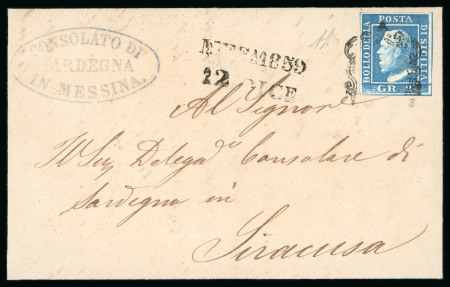 CONSOLATO DI
SARDEGNA
IN MESSINA.
12 DICE
BOLLO DELLA POSTA DI SICILIA
GR 2
Al Signore
Il Sig Delegao Consolare di
Sardegna in
Siracusa